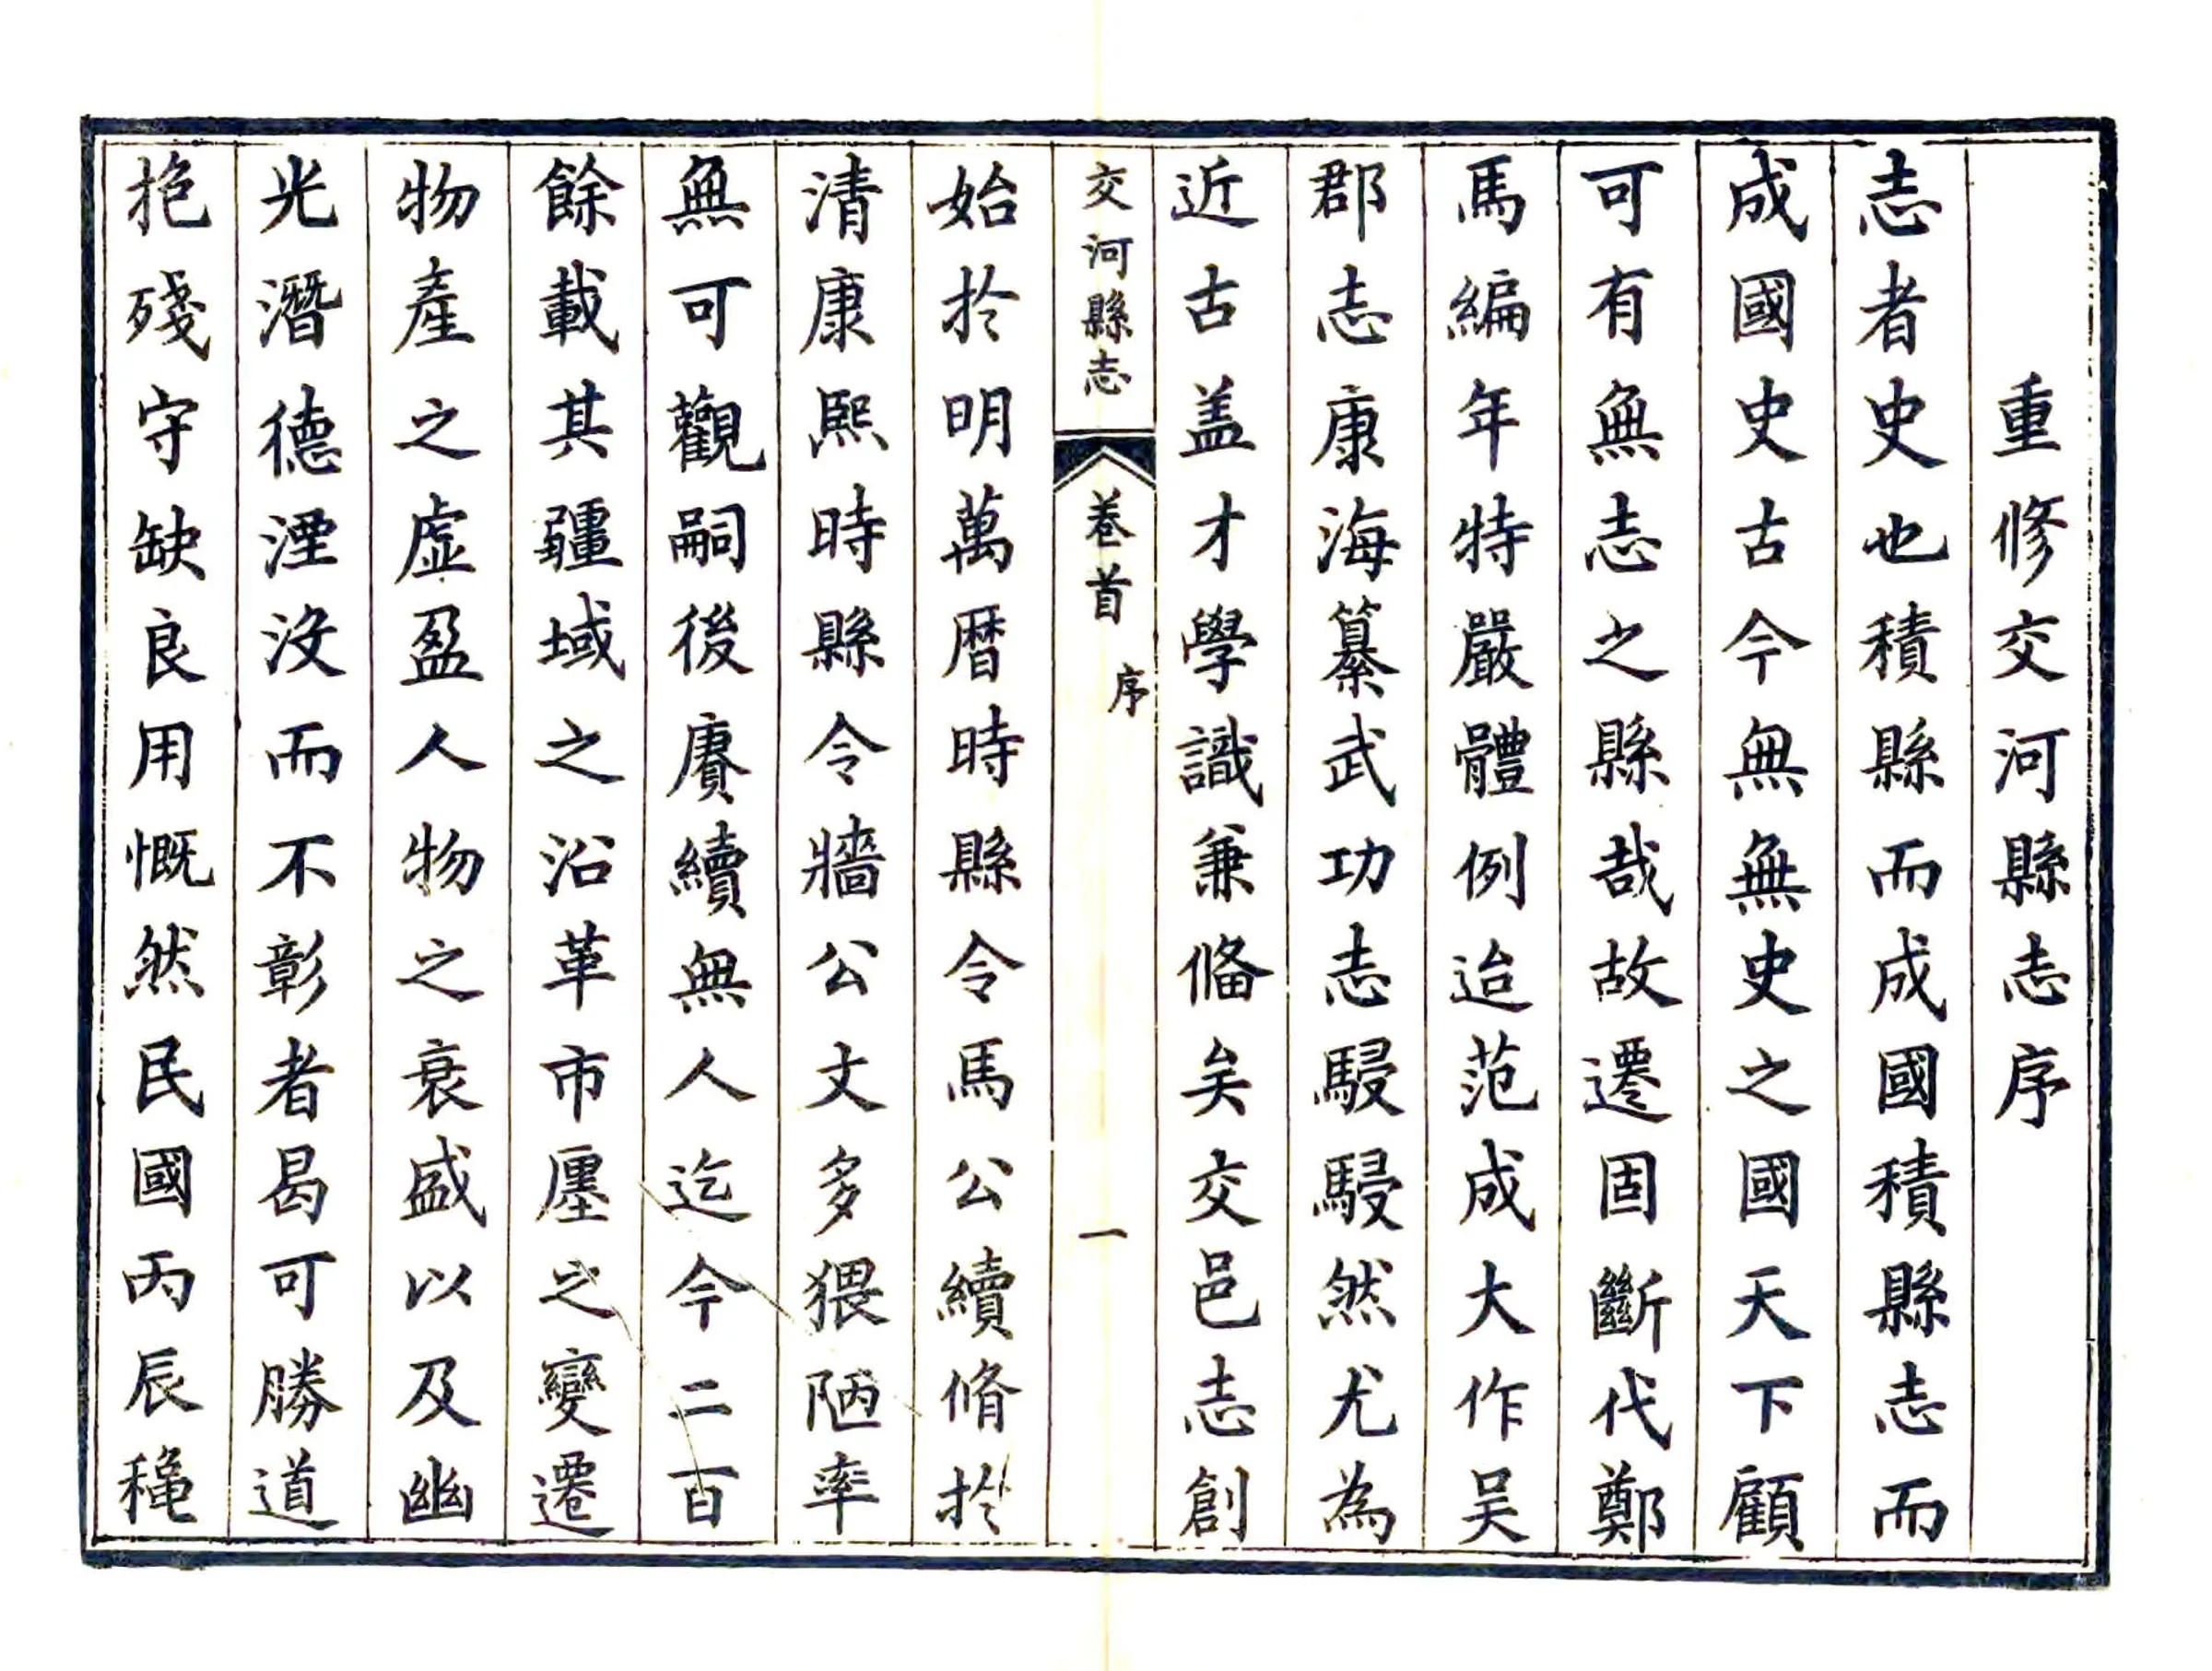 重修交河縣志序
志者史也積縣而成國積縣志而
成國史古今無無史之國天下顧
可有無志之縣哉故遷固斷代鄭
馬編年特嚴體例迨范成大作吴
郡志康海纂武功志駸駸然尤為
近古盖才學識兼俻矣交邑志創
交河縣志
卷首
序
一
始於明萬曆時縣令馬公續脩於
清康熙時縣令牆公文多猥陋率
無可觀嗣後賡續無人迄今二百
餘載其疆域之沿革市廛之變遷
物產之虛盈人物之衰盛以及幽
光潛德湮沒而不彰者曷可勝道
抱殘守缺良用慨然民國丙辰穐